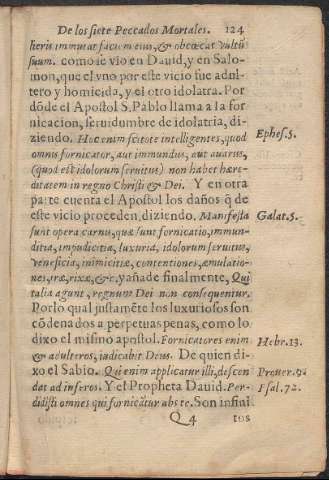 De los siete Peccados Mortales. 124
lieris immutat faciem eius, & obcæcat vultũ
suum. como se vio en Dauid, y en Salo-
mon, que el vno por este vicio fue adul-
tero y homicida, y el otro idolatra. Por
dõde el Apostol S. Pablo llama a la for
nicacion, seruidumbre de idolatria, di-
ziendo. Hoc enim scitote intelligentes, quod
Ephes. 5.
omnis fornicator, aut immundus, aut auarus,
(quod est idolorum seruitus) non habet hære-
ditatem in regno Christi & Dei. Y en otra
parte cuenta el Apostol los daños q̃ de
este vicio proceden, diziendo. Manifesta
Galat. 5.
sunt opera carnis, quæ sunt fornicatio, immun-
ditia, impudicitia, luxuria, idolorum seruitus,
veneficia, inimicitiæ, contentiones, æmulatio-
nes, iræ, rixæ, &c. y añade finalmente, Qui
talia agunt, regnum Dei non consequentur.
Por lo qual justamẽte los luxuriosos son
cõdenados a perpetuas penas, como lo
dixo el mismo apostol. Fornicatores enim
Hebr. 13.
& adulteros, iudicabit Deus. De quien di-
xo el Sabio. Qui enim applicatur illi, descen
Prouer. 9.
dat ad inferos. Y el Propheta Dauid. Per-
Psal. 72.
didisti omnes qui fornicãtur abs te. Son infini
Q 4 tos